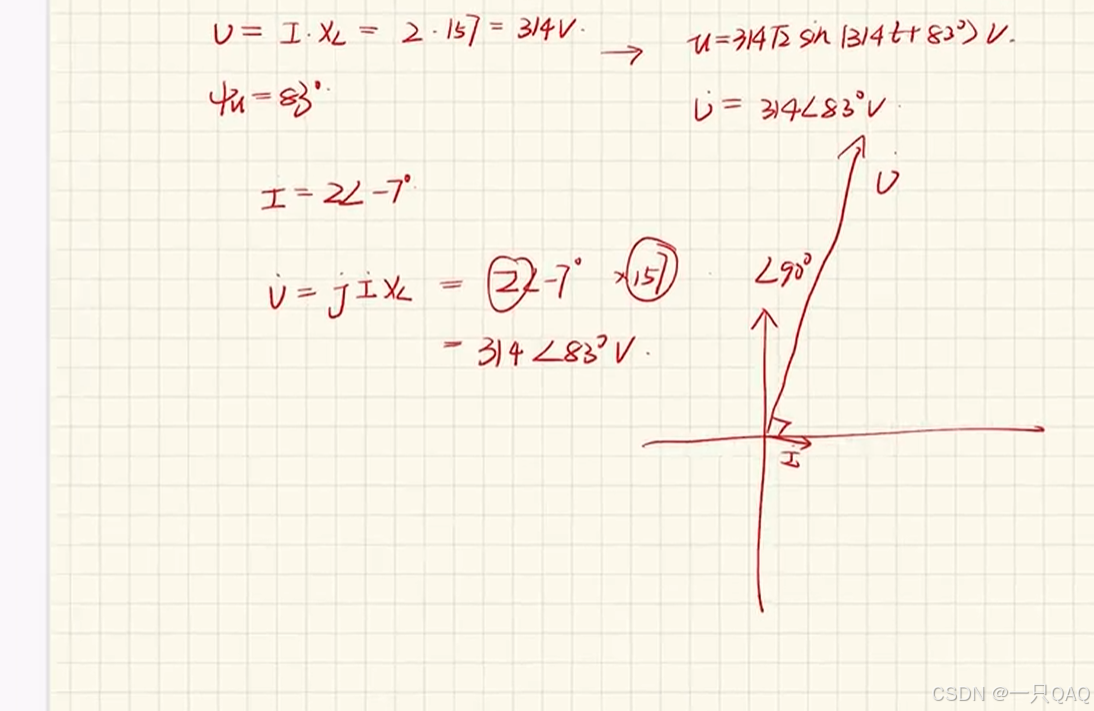 U = I·XL = 2·157 = 314V.
→ u=314√2 sin(314t+83°)V.
ψu=83°
U̇ = 314∠83°V
I = 2∠-7°
U̇ = jİXL = 2∠-7° ×157
= 314∠83°V.
U̇
∠90°
İ
CSDN @一只QAQ